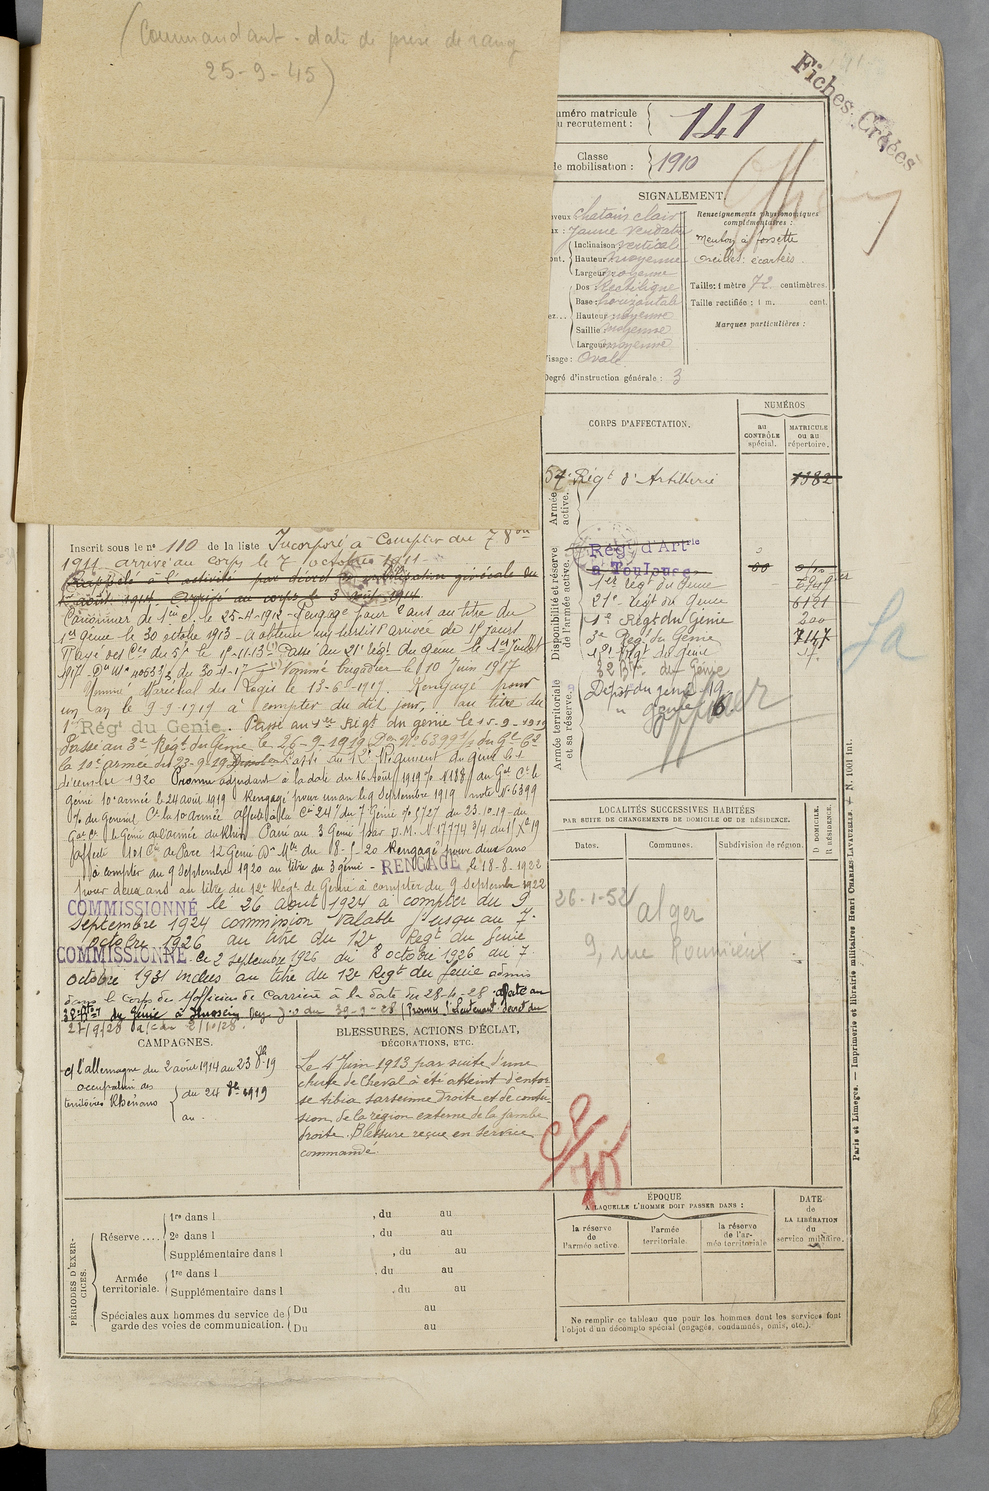 (Commandant - date de prise de rang
25-9-45)
Fiches Créées
Numéro matricule
du recrutement : 141
Classe
de mobilisation : 1910
SIGNALEMENT.
Chatain clair
Jaune verdatre
Inclinaison verticale
Hauteur moyenne
Largeur moyenne
Dos Rectiligne
Base : horizontale
Hauteur moyenne
Saillie moyenne
Largeur moyenne
Visage : Ovale
Degré d'instruction générale : 3
Renseignements physionomiques
complémentaires :
Menton à fossette
Oreilles : écartées.
Taille : 1 mètre 72 centimètres.
Taille rectifiée : 1 m. cent.
Marques particulières :
CORPS D'AFFECTATION.
NUMÉROS
au
CONTRÔLE
spécial.
MATRICULE
ou au
répertoire.
Armée
active.
54e Régt d'Artillerie 1382
Disponibilité et réserve
de l'armée active.
Régt d'Artrie
à Toulouse
1er Regt du Génie
21e Regt du Génie 6121
1er Regt du Génie 200
3e Reg. du Génie 7147
12e Regt du Génie
32 Bt. du Génie
Armée territoriale
et sa réserve.
Dépôt du génie 19
" Génie 16
Inscrit sous le n° 110 de la liste Incorporé à compter du 7 8bre
1911 arrivé au corps le 7 octobre 1911
Rappelé à l'activité par décret de mobilisation générale du
1er août 1914. Arrivé au corps le 3 août 1914
Canonnier de 1re cl. le 25-4-1912 - Rengagé pour 2 ans au titre du
1er Génie le 30 octobre 1913 - a obtenu un sursis d'arrivée de 15 jours
Passé au 21e Régt du Génie le 1er Juillet
1917 du 30-4-17 Nommé brigadier le 10 Juin 1917
Nommé Maréchal des Logis le 13-6-1917. Rengagé pour
un an le 9-9-1919 à compter du dit jour, au titre du
1er Régt du Genie. Passé au 1er Régt du génie le 15-9-1919
Passé au 3e Régt du Génie le 26-9-1919 Don N° 6399 1/3 du Gl Ct
la 10e armée du 23-9-19 Passé au 12e Régiment du Génie le 1
décembre 1920 Promu adjudant à la date du 16 Août 1919 % N 188 du Gal Ct le
Génie 10e armée le 24 août 1919 Rengagé pour un an le 9 Septembre 1919 note N° 6399
% du General Ct la 10e armée affecté à la Cie 24/1 du 7 Génie % 5727 du 23.10.19 du
Gal Ct le Génie de l'armée du Rhin Passé au 3 Génie par D.M. N 17774 3/4 du
affecté Cie de Parc 12 Génie du 8-1-20 Rengagé pour deux ans
à compter du 9 Septembre 1920 au titre du 3 génie - RENGAGÉ le 18-8-1922
pour deux ans au titre du 12e Régt de Génie à compter du 9 Septembre 1922
COMMISSIONNÉ le 26 août 1924 à compter du 9
Septembre 1924 commission valable jusqu'au 7
octobre 1926 au titre du 12e Regt du Genie
COMMISSIONNÉ le 2 septembre 1926 du 8 octobre 1926 au 7
octobre 1931 inclus au titre du 12e Regt du Genie admis
dans le corps des S/officiers de Carrière à la date du 28-4-28 affecté au
32e Bton du Génie à Hussein Dey Promu S/Lieutenant décret du
27/9/28
CAMPAGNES.
C/ l'allemagne du 2 août 1914 au 23 8bre 19
occupation des
territoires Rhénans
du 24 8bre 1919
au
BLESSURES, ACTIONS D'ÉCLAT,
DÉCORATIONS, ETC.
Le 4 Juin 1913 par suite d'une
chute de cheval à été atteint d'entor
se tibia tarsienne droite et de contu
sion de la région externe de la jambe
droite. Blessure reçue en service
commandé.
LOCALITÉS SUCCESSIVES HABITÉES
PAR SUITE DE CHANGEMENTS DE DOMICILE OU DE RÉSIDENCE.
Dates.
Communes.
Subdivision de région.
D DOMICILE.
R RÉSIDENCE.
26-1-52 alger
9, rue Roumieux
CP/70
PÉRIODES D'EXER-
CICES.
Réserve ....
1re dans l , du au
2e dans l , du au
Supplémentaire dans l , du au
Armée
territoriale.
1re dans l , du au
Supplémentaire dans l , du au
Spéciales aux hommes du service de
garde des voies de communication.
Du au
Du au
ÉPOQUE
A LAQUELLE L'HOMME DOIT PASSER DANS :
la réserve
de
l'armée active.
l'armée
territoriale.
la réserve
de l'ar-
mée territoriale.
DATE
de
LA LIBÉRATION
du
service militaire.
Ne remplir ce tableau que pour les hommes dont les services font
l'objet d'un décompte spécial (engagés, condamnés, omis, etc.).
Paris et Limoges. — Imprimerie et librairie militaires Henri CHARLES-LAVAUZELLE. — N. 1001 int.